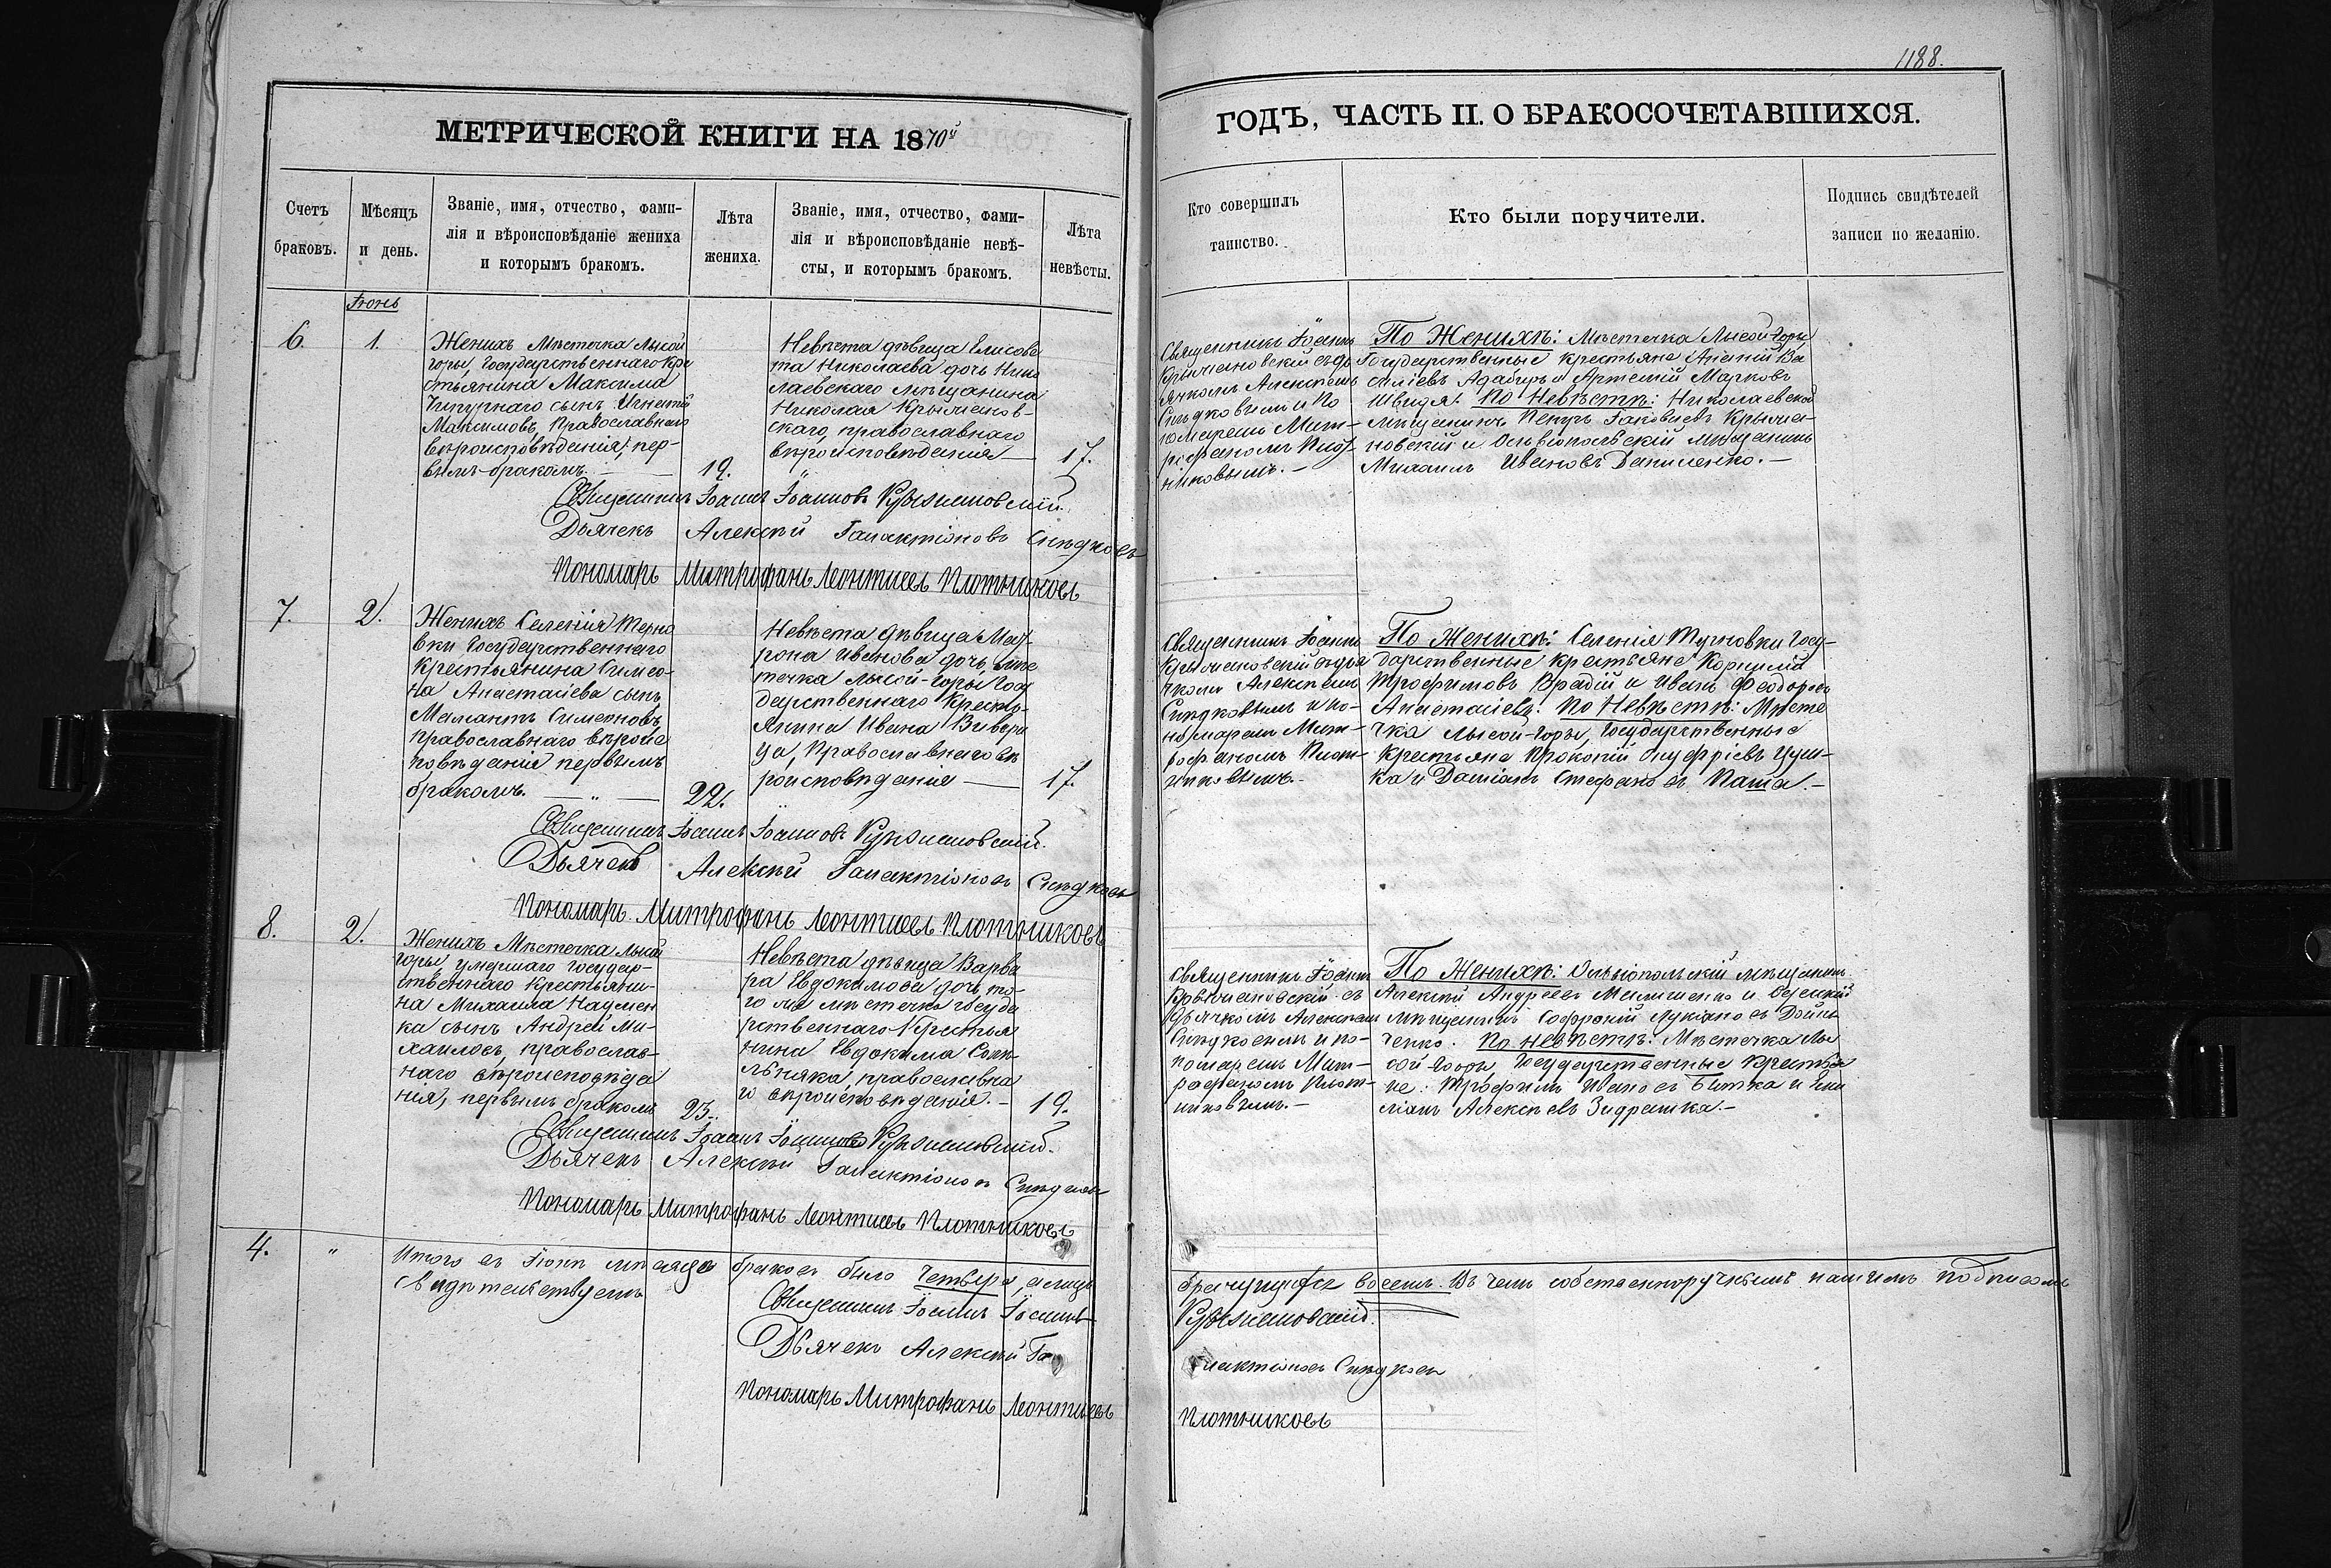 1188.
МЕТРИЧЕСКОЙ КНИГИ НА 1870й
ГОДЪ, ЧАСТЬ II. О БРАКОСОЧЕТАВШИХСЯ.
Счетъ браковъ.
Мѣсяцъ и день.
Званіе, имя, отчество, фами-
лія и вѣроисповѣданіе жениха
и которымъ бракомъ.
Лѣта жениха.
Званіе, имя, отчество, фами-
лія и вѣроисповѣданіе невѣ-
сты, и которымъ бракомъ.
Лѣта невѣсты.
Кто совершилъ таинство.
Кто были поручители.
Подпись свидѣтелей
записи по желанію.
Іюнь
6.
1.
Женихъ Мѣстечка Лысой
горы, Государственнаго Кре
стьянина Максима
сынъ Игнатій
Максимовъ, Православнаго
вѣроисповѣденія, пер-
вымъ бракомъ. —
19.
Невѣста дѣвица Елисаве
та Николаева дочь Нико
лаевскаго мѣщанина
Николая Крыжанов-
скаго, православнаго
вѣроисповѣденія —
17.
Священникъ Іоаннъ
Крыжановскій съ дь
ячкомъ Алексѣемъ
Сѣдковымъ и По
номаремъ Мит-
рофаномъ Плот-
никовымъ. —
По Женихѣ: Мѣстечка Лысой Горы,
Государственные крестьяне Ананій Ва
силіевъ и Артемій Марковъ
Швидя. По Невѣстѣ: Николаевскій
мѣщанинъ Петръ Іаковлевъ Крыжа-
новскій и Ольвіопольскій мѣщанинъ
Михаилъ Ивановъ Даниленко. —
Священникъ Іоаннъ Іоанновъ Крыжановскій.
Дьячекъ Алексѣй Галактіоновъ Сѣдковъ
Пономарь Митрофанъ Леонтіевъ Плотниковъ
7.
2.
Женихъ Селенія Терно
вки Государственнаго
Крестьянина Симео-
на Анастасіева сынъ
Мамантъ Симеоновъ,
православнаго вѣроис
повѣданія первымъ
бракомъ. — „ —
22.
Невѣста дѣвица Мат-
рона Иванова дочь, мѣс
течка Лысой-Горы Госу
дарственнаго Кресть-
янина Ивана
ца, Православнаго вѣ
роисповѣданія —
17.
Священникъ Іоаннъ
Крыжановскій съ дья
чкомъ Алексѣемъ
Сѣдковымъ и по-
номаремъ Мит-
рофаномъ Плот-
никовымъ. —
По Женихѣ: Селенія Терновки Госу-
дарственные крестьяне Корнилій
Трофимовъ Врадій и Иванъ Феодоровъ
Анастасіевъ. По Невѣстѣ: Мѣсте
чка Лысой-Горы, Государственные
Крестьяне Прокопій Онуфріевъ
ка и Даміанъ Стефановъ Паша. —
Священникъ Іоаннъ Іоанновъ Крыжановскій.
Дьячекъ Алексѣй Галактіоновъ Сѣдковъ
Пономарь Митрофанъ Леонтіевъ Плотниковъ
8.
2.
Женихъ Мѣстечка Лысой
горы, умершаго государ-
ственнаго крестьяни-
на Михаила Наумен
ка сынъ Андрей Ми-
хаиловъ, православ-
наго вѣроисповѣда
нія, первымъ бракомъ
23.
Невѣста дѣвица Варва
ра Евдокимова дочь то-
го же мѣстечка Госуда
рственнаго Крестья
нина Евдокима
православна
го вѣроисповѣданія. —
19.
Священникъ Іоаннъ
Крыжановскій съ
дьячкомъ Алексѣемъ
Сѣдковымъ и по-
номаремъ Мит-
рофаномъ Плот-
никовымъ. —
По Женихѣ: Ольвіопольскій мѣщанинъ
Алексѣй Андреевъ и Одесскій
мѣщанинъ Софроній Лукіановъ Дойни
ченко. По невѣстѣ: Мѣстечка Лы
сой-Горы, Государственные крестья
не: Трофимъ Ивановъ Битка и Еми
ліанъ Алексѣевъ —
Священникъ Іоаннъ Іоанновъ Крыжановскій.
Дьячекъ Алексѣй Галактіоновъ Сѣдковъ
Пономарь Митрофанъ Леонтіевъ Плотниковъ
4.
„
Итого въ Іюнѣ мѣсяцѣ браковъ было четыре, а лицъ брачущихся восемь. Въ чемъ собственноручнымъ нашимъ подписомъ
свидѣтельствуемъ
Священникъ Іоаннъ Іоанновъ Крыжановскій.
Дьячекъ Алексѣй Галактіоновъ Сѣдковъ
Пономарь Митрофанъ Леонтіевъ Плотниковъ